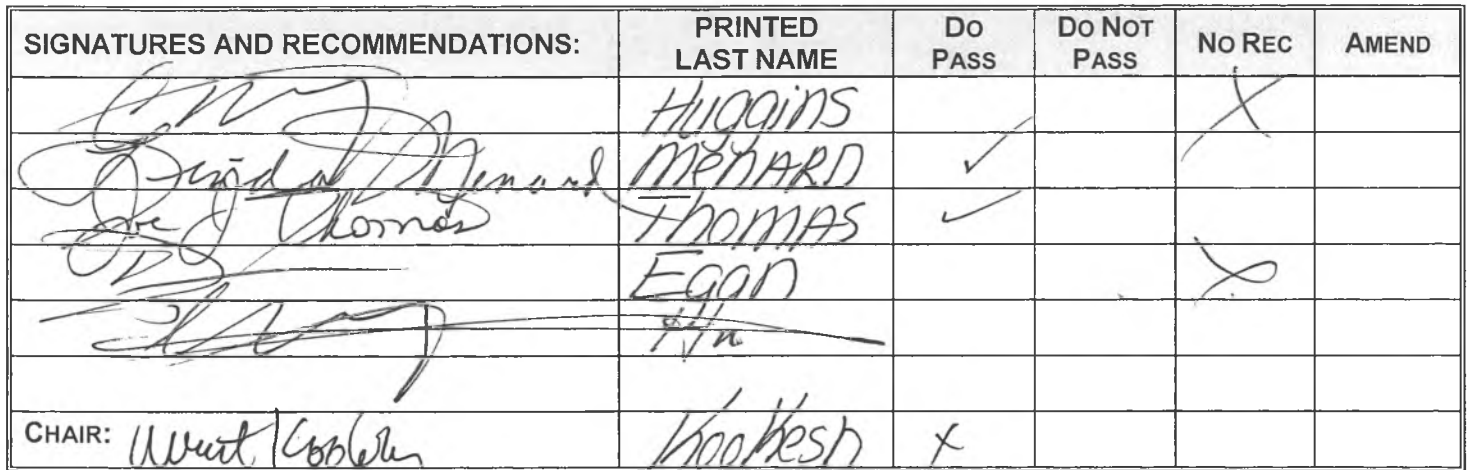 SIGNATURES AND RECOMMENDATIONS: PRINTED LAST NAME DO PASS DO NOT PASS NO REC AMEND
Huggins X
Linda Menard MENARD ✓
Joe J Thomas THOMAS ✓
Egan X
CHAIR: Kookesh X